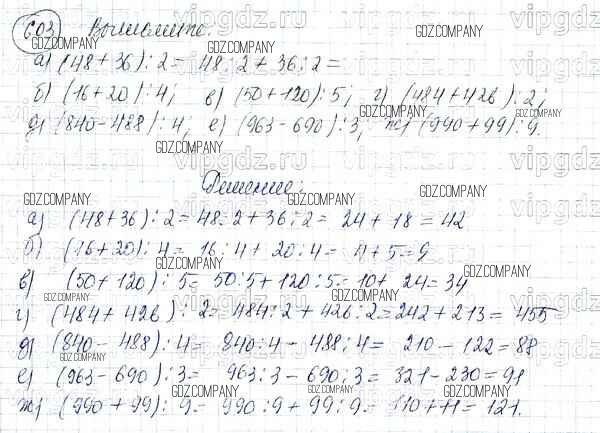 603 Вычислите:
а) (48+36):2 = 48:2 + 36:2 =
б) (16+20):4; в) (50+120):5; г) (484+426):2;
д) (840-488):4; е) (963-690):3; ж) (990+99):9.
Решение:
а) (48+36):2 = 48:2 + 36:2 = 24 + 18 = 42
б) (16+20):4 = 16:4 + 20:4 = 4+5=9
в) (50+120):5 = 50:5 + 120:5 = 10 + 24 = 34
г) (484+426):2 = 484:2 + 426:2 = 242 + 213 = 455
д) (840-488):4 = 840:4 - 488:4 = 210 - 122 = 88
е) (963-690):3 = 963:3 - 690:3 = 321 - 230 = 91
ж) (990+99):9 = 990:9 + 99:9 = 110 + 11 = 121.
vipgdz.ru
GDZ.COMPANY